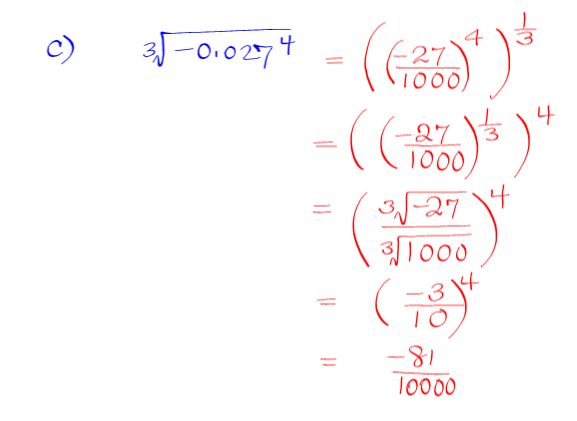 c) ∛(-0.027⁴) = ((-27/1000)⁴)^(1/3)
= ((-27/1000)^(1/3))⁴
= (∛-27/∛1000)⁴
= (-3/10)⁴
= -81/10000